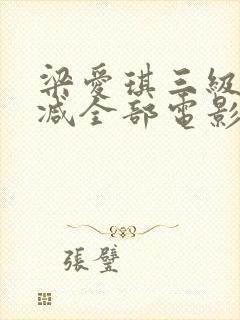 梁愛琪三級
减全部電影
張璧